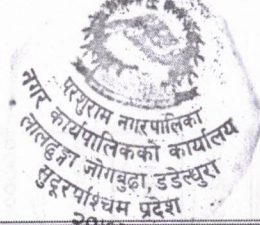 परशुराम नगरपालिका
नगर कार्यपालिकाको कार्यालय
जोगबुढा, डडेल्धुरा
सुदूरपश्चिम प्रदेश